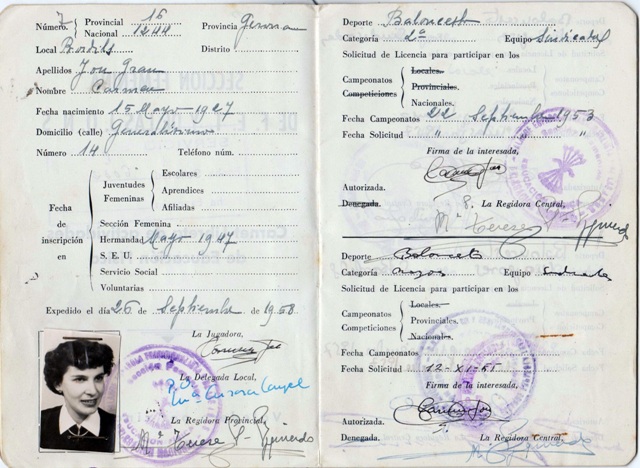 Núm. { Provincial 16
Nacional 1244
Provincia Gerona
Local Bordils Distrito
Apellidos Jou Grau
Nombre Carmen
Fecha nacimiento 15 Mayo 1927
Domicilio (calle) Generalisimo
Número 14 Teléfono núm.
Fecha de inscripción en
Juventudes Femeninas
Escolares
Aprendices
Afiliadas
Sección Femenina
Hermandad Mayo 1947
S. E. U.
Servicio Social
Voluntarias
Expedido el día 26 de Septiembre de 1950
La Jugadora,
La Delegada Local,
P.O.
La Regidora Provincial,
Deporte Baloncesto
Categoría 2ª Equipo Sindicatos
Solicitud de Licencia para participar en los
Campeonatos
Competiciones
Locales.
Provinciales.
Nacionales.
Fecha Campeonatos 22 Septiembre 1953
Fecha Solicitud " " "
Firma de la interesada,
Autorizada.
Denegada. La Regidora Central,
Deporte Baloncesto
Categoría Equipo
Solicitud de Licencia para participar en los
Campeonatos
Competiciones
Locales.
Provinciales.
Nacionales.
Fecha Campeonatos
Fecha Solicitud 12-XI-55
Firma de la interesada,
Autorizada.
Denegada. La Regidora Central,